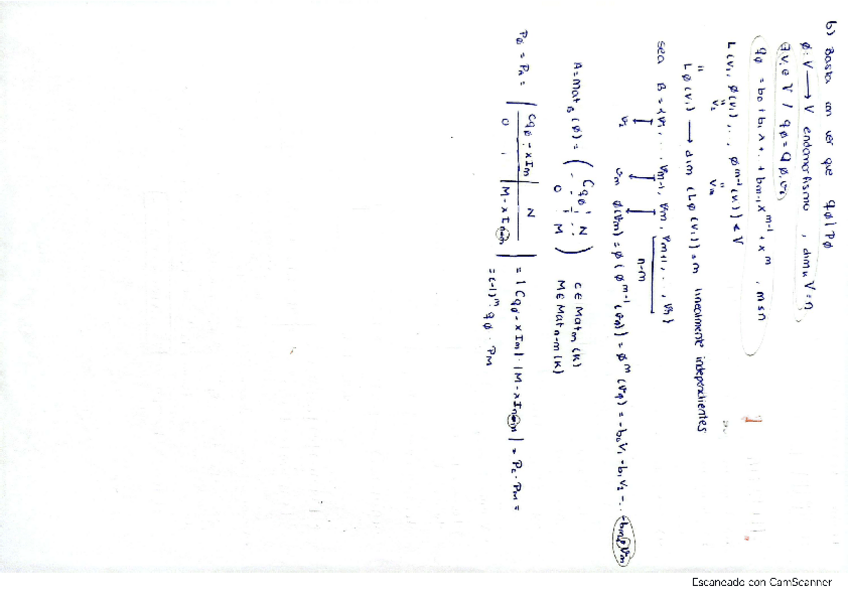 b) Basta con ver que qφ | Pφ
φ: V → V endomorfismo, dimₖ V = n,
∃ v₁ ∈ V / qφ = qφ,v₁
qφ = b₀ + b₁x + .. + bₘ₋₁x^(m-1) + x^m , m ≤ n
L(v₁, φ(v₁), .., φ^(m-1)(v₁)) ∈ V
" v₂ " vₘ "
Lφ(v₁) → dim (Lφ(v₁)) = m linealmente independientes
sea B = {v₁, .., vₘ₋₁, vₘ, vₘ₊₁, .., vₙ}
n-m
v₂ vₘ φ(vₘ) = φ(φ^(m-1)(v₁)) = φ^m(v₁) = -b₀v₁ - b₁v₂ - .. -bₘ₋₁vₘ
A = Mat_B(φ) = ( Cqφ N ; 0 M ) C ∈ Matₘ(K)
M ∈ Matₙ₋ₘ(K)
Pφ = P_A = | Cqφ - xIm N ; 0 M - xIn-m | = |Cqφ - xIm| · |M - xIn-m| = Pc · Pm =
= (-1)^m qφ · PM
Escaneado con CamScanner